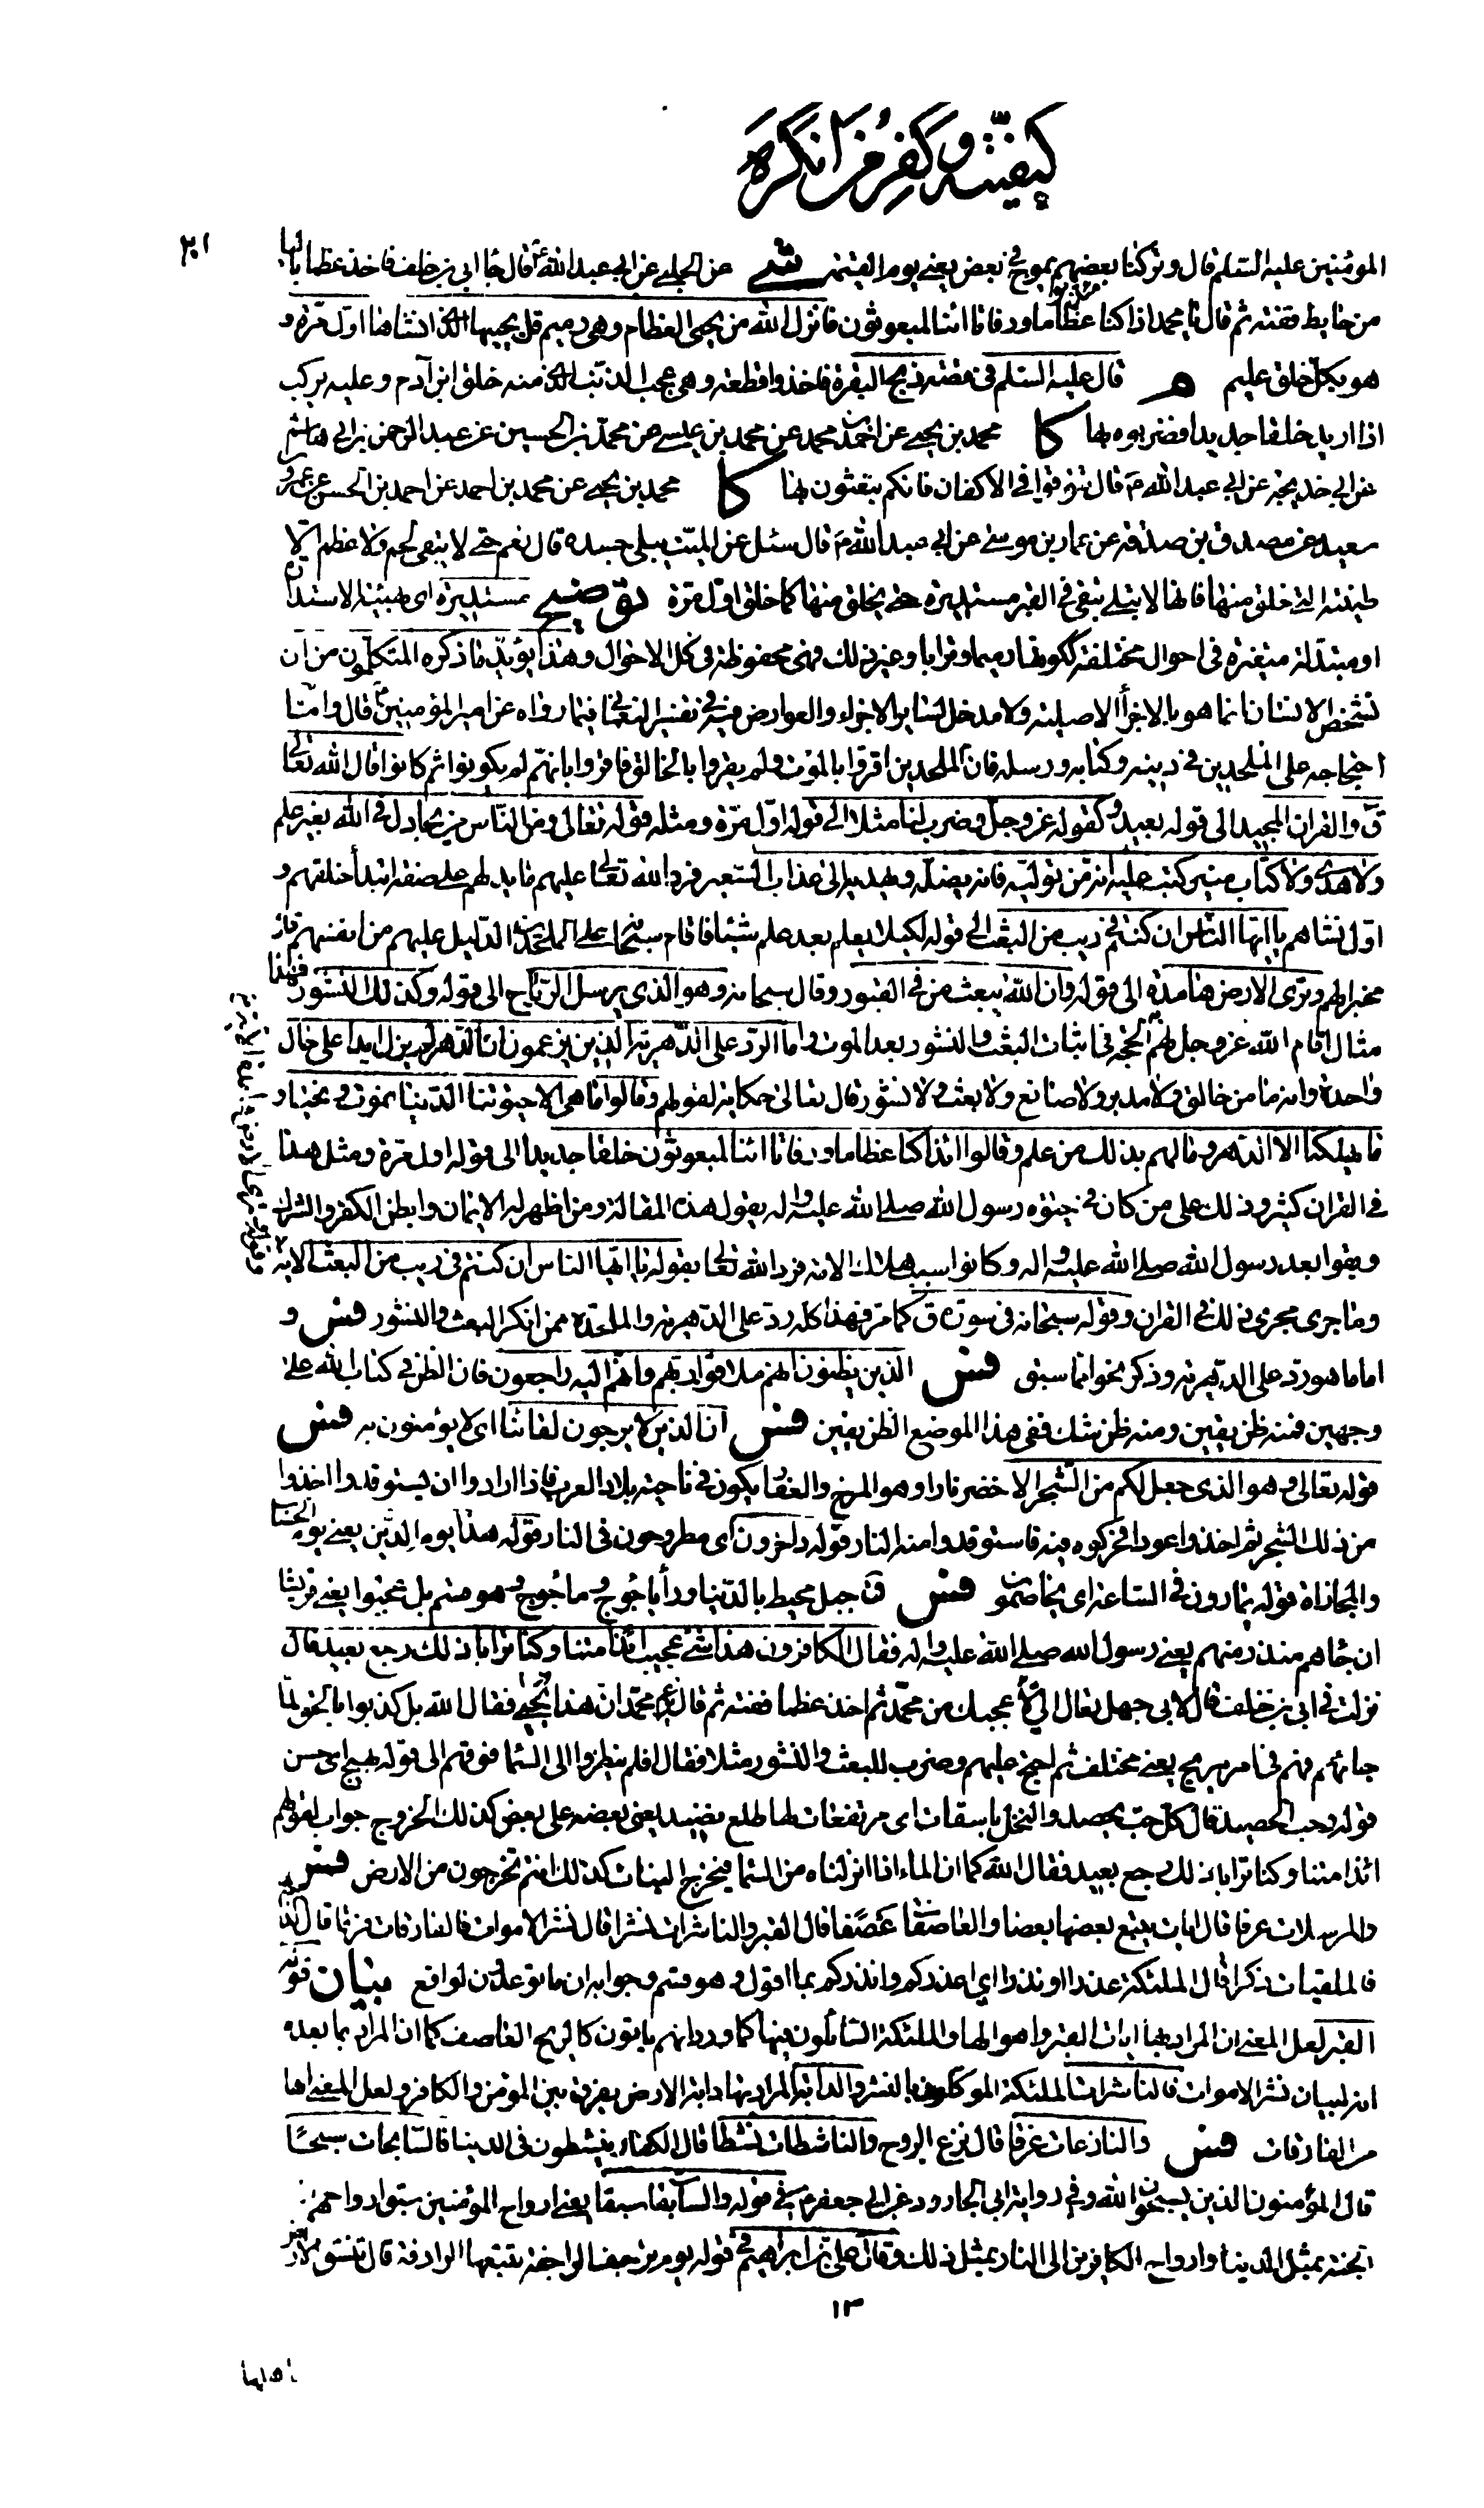 كيفيته وكفر من انكره
٢٠١
المؤمنين عليه السلام قال وتركنا بعضهم يموج في بعض يعني يوم القيمة شي عن الحلبي عن ابي عبد الله ع قال جاء ابي بن خلف فاخذ عظما باليا
من حايط ففته ثم قال يا محمد اذا كنا عظاما ورفاتا ائنا لمبعوثون فانزل الله من يحيى العظام وهي رميم قل يحييها الذي انشاها اول مرة و
هو بكل خلق عليم م قال عليه السلم في قصة ذبح البقرة فاخذوا قطعة وهي عجب الذنب الذي منه خلق ابن آدم وعليه يركب
اذا اريد خلقا جديدا فضربوه بها كا محمد بن يحيى عن احمد بن محمد عن محمد بن عيسى عن محمد بن الحسين عن عبد الرحمن بن ابي هاشم
عن ابي خديجة عن ابي عبد الله ع قال تنوقوا في الاكفان فانكم تبعثون بها كا محمد بن يحيى عن محمد بن احمد عن احمد بن الحسن عن عمرو
سعيد عن مصدق بن صدقة عن عمار بن موسى عن ابي عبد الله ع قال سئل عن الميت يبلى جسده قال نعم حتى لا يبقى لحم ولا عظم الا
طينته التي خلق منها فانها لا تبلى تبقى في القبر مستديرة حتى يخلق منها كما خلق اول مرة توضيح مستديرة اى بهيئة الاستدارة
او متبدلة متغيرة في احوال مختلفة ككونها رميما وترابا وغير ذلك فهى محفوظة في كل الاحوال وهذا يؤيد ما ذكره المتكلمون من ان
تشخص الانسان انما هو بالاجزاء الاصلية ولا مدخل لساير الاجزاء والعوارض فيه في تفسير النعماني فيما رواه عن امير المؤمنين ع قال واما
احتجاجه على الملحدين في دينه وكتابه ورسله فان الملحدين اقروا بالموت ولم يقروا بالخالق فاقروا بانهم لم يكونوا ثم كانوا قال الله تعالى
ق والقران المجيد الى قوله بعيد وكقوله عز وجل وضرب لنا مثلا الى قوله اول مرة ومثله قوله تعالى ومن الناس من يجادل في الله بغير علم
ولا هدى ولا كتاب منير كتب عليه انه من تولاه فانه يضله ويهديه الى عذاب السعير فرد الله تعالى عليهم ما يدلهم على صفة ابتدأ خلقهم و
اول نشاهم يا ايها الناس ان كنتم في ريب من البعث الى قوله لكيلا يعلم بعد علم شيئا فاقام سبحانه على الملحدين الدليل عليهم من انفسهم قال
مخبرا لهم وترى الارض هامدة الى قوله وان الله يبعث من في القبور وقال سبحانه وهو الذي يرسل الرياح الى قوله وكذلك النشور فهذا
مثال اقام الله عز وجل لهم به الحجة في اثبات البعث والنشور بعد الموت واما الرد على الدهرية الذين يزعمون ان الدهر لم يزل ابدا على حال
واحدة وانه ما من خالق ولا مدبر ولا صانع ولا بعث ولا نشور قال تعالى حكاية لقولهم وقالوا ما هي الا حيوتنا الدنيا نموت ونحيى و
ما يهلكنا الا الدهر وما لهم بذلك من علم وقالوا ائذا كنا عظاما ورفاتا ائنا لمبعوثون خلقا جديدا الى قوله اول مرة ومثل هذا
في القران كثير وذلك على من كان في حيوة رسول الله صلى الله عليه واله يقول هذه المقالة ومن اظهر له الايمان وابطن الكفر والشرك
وبقوا بعد رسول الله صلى الله عليه واله وكانوا سبب هلاك الامة فرد الله تعالى بقوله يا ايها الناس ان كنتم في ريب من البعث الاية
وما جرى مجرى ذلك في القران وقوله سبحانه في سورة ق كما مر فهذا كله رد على الدهرية والملحدة ممن انكر البعث والنشور فس و
اما ما هو رد على الدهرية وذكر نحو اما سبق فس الذين يظنون انهم ملاقوا ربهم وانهم اليه راجعون فان الظن في كتاب الله على
وجهين فمنه ظن يقين ومنه ظن شك ففي هذا الموضع الظن يقين فس ان الذين لا يرجون لقاءنا اى لا يؤمنون به فس
قوله تعالى وهو الذي جعل لكم من الشجر الاخضر نارا وهو المرخ والعفار يكون في ناحية بلاد العرب فاذا ارادوا ان يستوقدوا اخذوا
من ذلك الشجر ثم اخذوا عودا فحركوه فيه فاستوقدوا منه النار قوله داخرون اى مطروحون في النار قوله هذا يوم الدين يعني يوم الحساب
والمجازاة قوله يمارون في الساعة اى يخاصمون فس ق جبل محيط بالدنيا ورأ ياجوج وماجوج وهو قسم بل عجبوا يعني قريشا
ان جاءهم منذر منهم يعني رسول الله صلى الله عليه واله فقال الكافرون هذا شئ عجيب ائذا متنا وكنا ترابا ذلك رجع بعيد قال
نزلت في ابي بن خلف قال لابي جهل تعال الي لاعجبك من محمد ثم اخذ عظما ففته ثم قال يزعم محمد ان هذا يحيى فقال الله بل كذبوا بالحق لما
جائهم فهم في امر مريج يعني مختلف ثم احتج عليهم وضرب للبعث والنشور مثلا فقال افلم ينظروا الى السماء فوقهم الى قوله بهيج اى حسن
قوله وحب الحصيد قال كل حب يحصد والنخل باسقات اى مرتفعات لها طلع نضيد يعني بعضه على بعض كذلك الخروج جواب لقولهم
ائذا متنا وكنا ترابا ذلك رجع بعيد فقال الله كما ان الماء اذا انزلناه من السماء فيخرج النبات كذلك انتم تخرجون من الارض فس
والمرسلات عرفا قال ايات يتبع بعضها بعضا والعاصفات عصفا قال القبر والناشرات نشرا قال نشر الاموات فالفارقات فرقا قال الدابة
فالملقيات ذكرا قال الملئكة عذرا او نذرا اي اعذركم وانذركم بما اقول وهو قسم وجوابه ان ما توعدون لواقع بيان قوله
القبر لعل المعنى ان المراد بها ايات القبر واهوالها والملئكة السائلون فيها كما ورد انهم ياتون كالريح العاصف كما ان المراد بما بعده
انه لبيان نشر الاموات فالناشرات الملئكة الموكلون بالنشر والدابة المراد بها دابة الارض يفرق بين المؤمن والكافر ولعل المعنى انها
من الفارقات فس والنازعات غرقا قال نزع الروح والناشطات نشطا قال الكفار ينشطون في الدنيا والسابحات سبحا
قال المؤمنون الذين يسبحون الله وفي رواية ابي الجارود عن ابي جعفر ع في قوله والسابقات سبقا يعني ارواح المؤمنين سبق ارواحهم
الجنة بمثل الدنيا وارواح الكافرين الى النار بمثل ذلك وقال علي بن ابراهيم في قوله يوم ترجف الراجفة تتبعها الرادفة قال تنشق الارض
١٣
باهلها